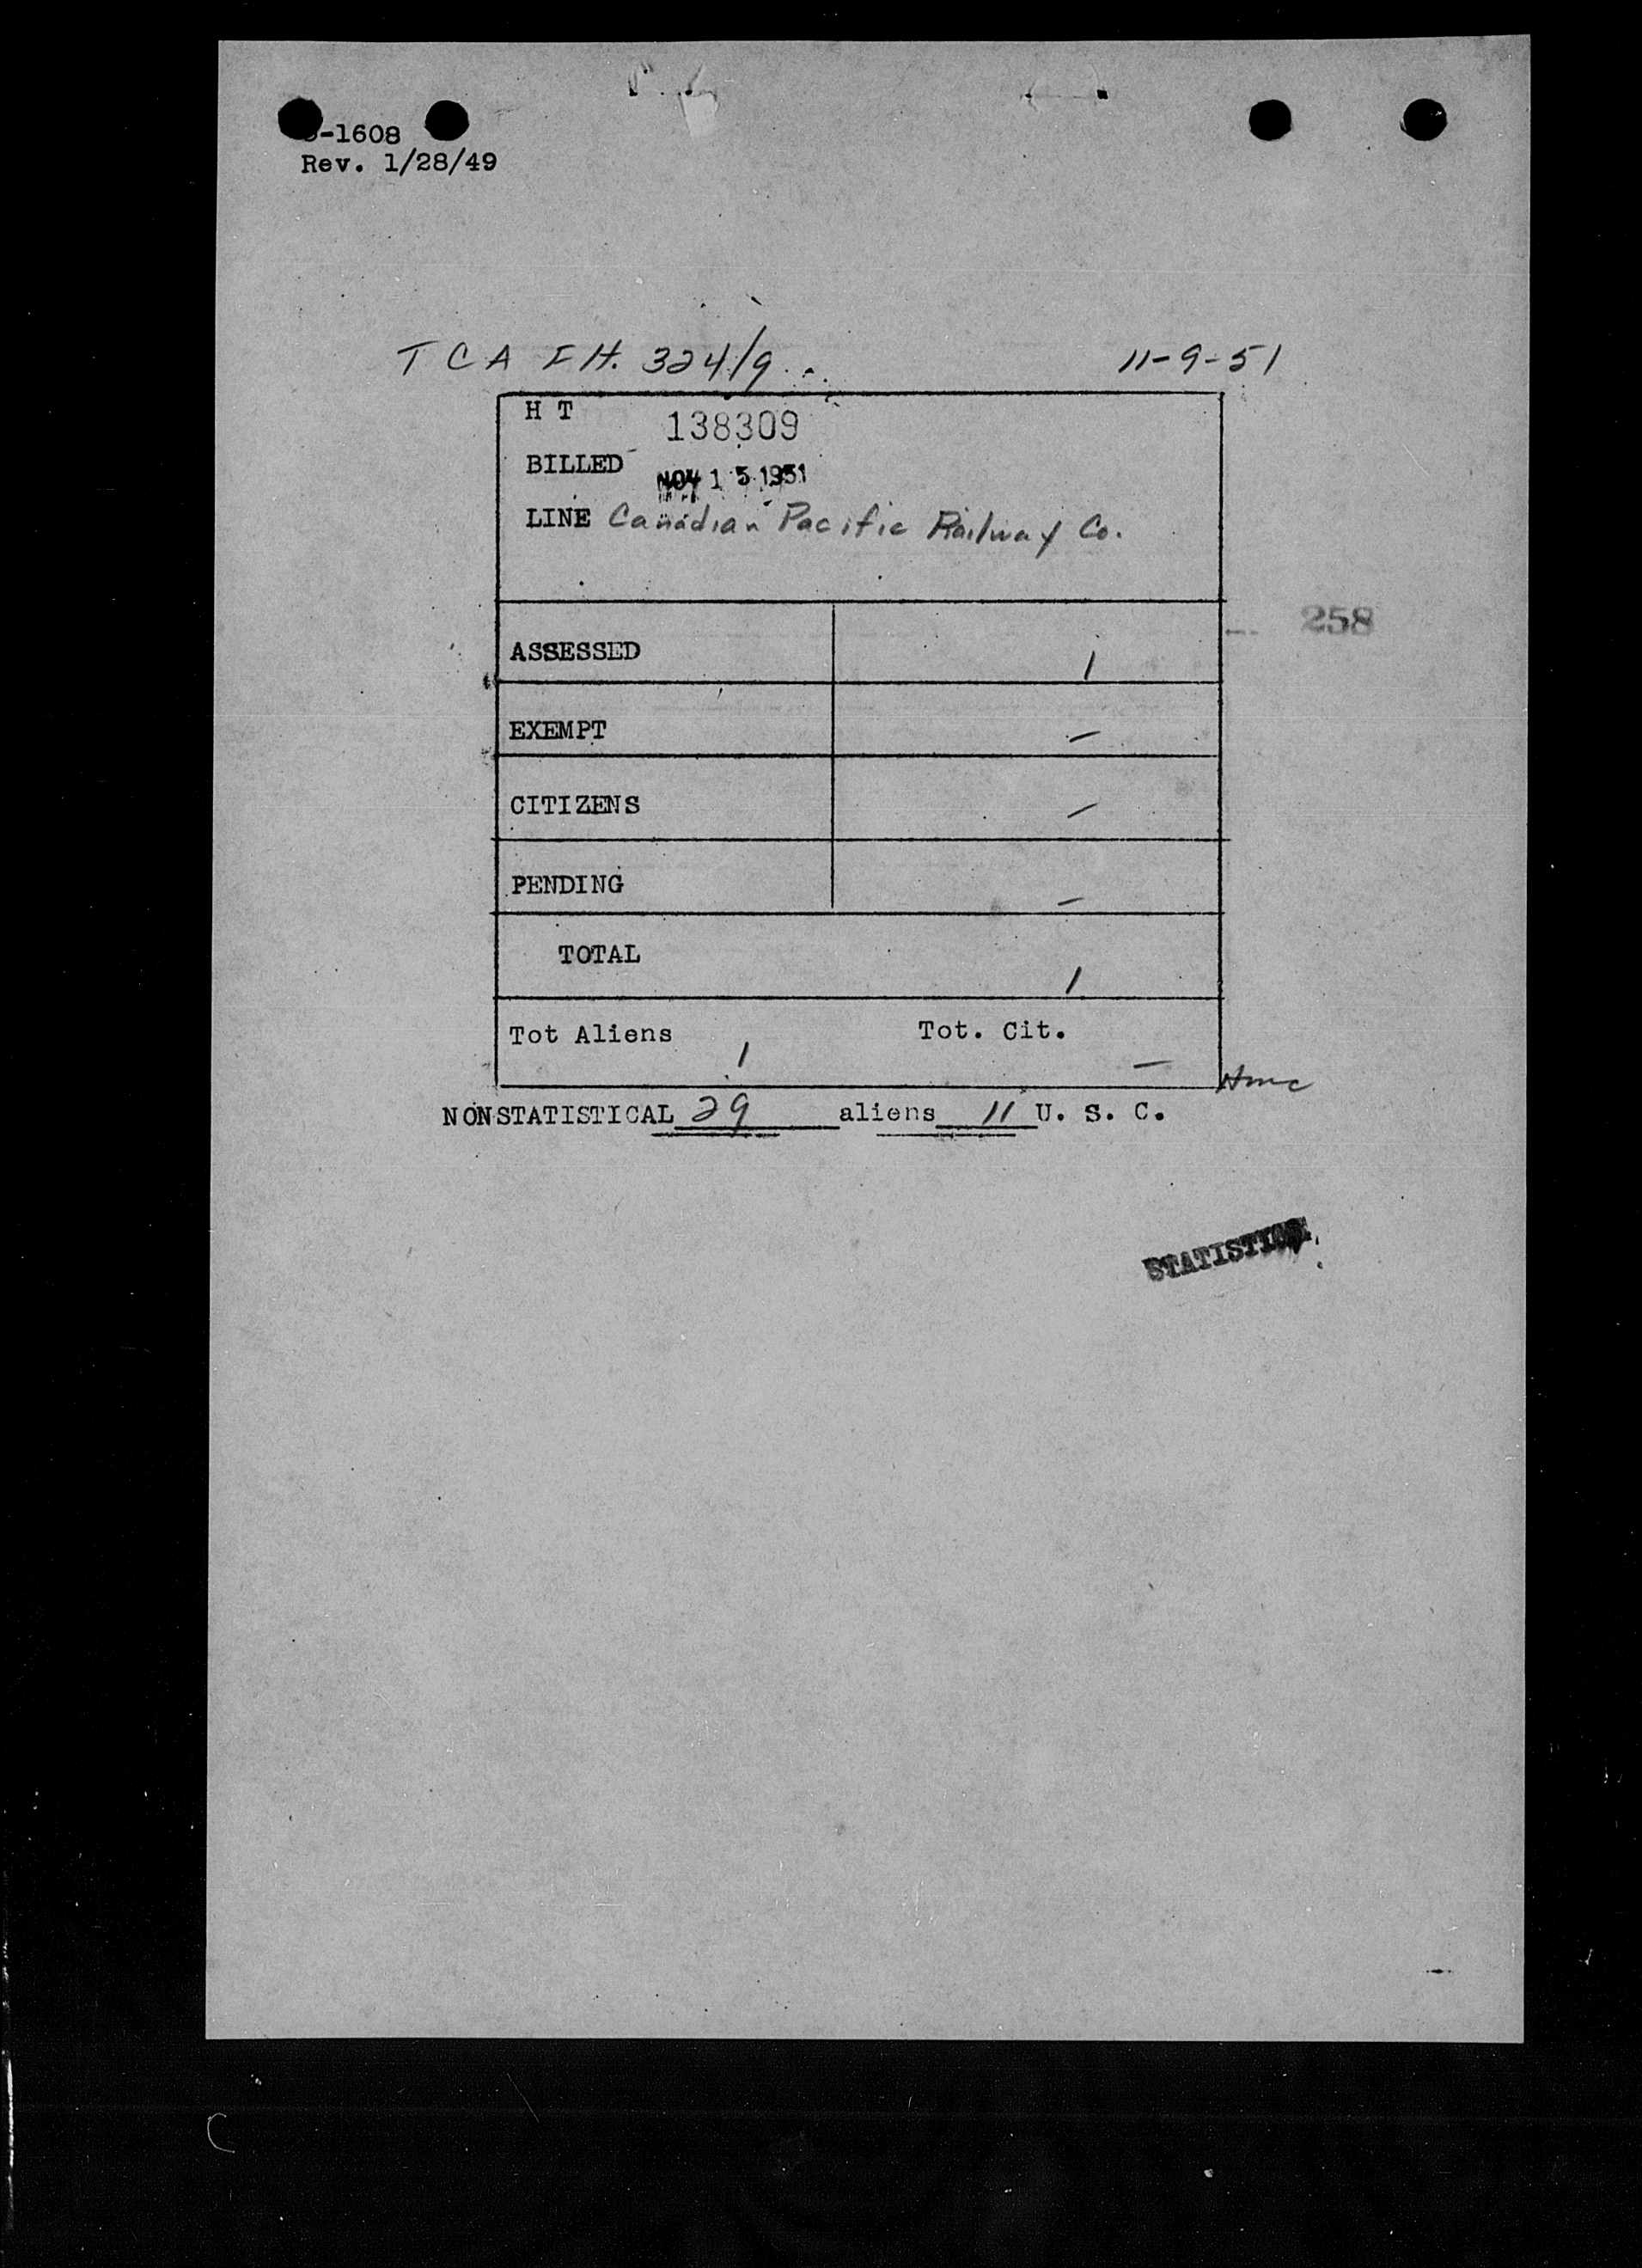 -1608
Rev. 1/28/49
TCA FH. 324/9 11-9-51
H T 138309
BILLED NOV 15 1951
LINE Canadian Pacific Railway Co.
258
ASSESSED 1
EXEMPT –
CITIZENS –
PENDING –
TOTAL 1
Tot Aliens 1 Tot. Cit. –
NONSTATISTICAL 29 aliens 11 U. S. C.